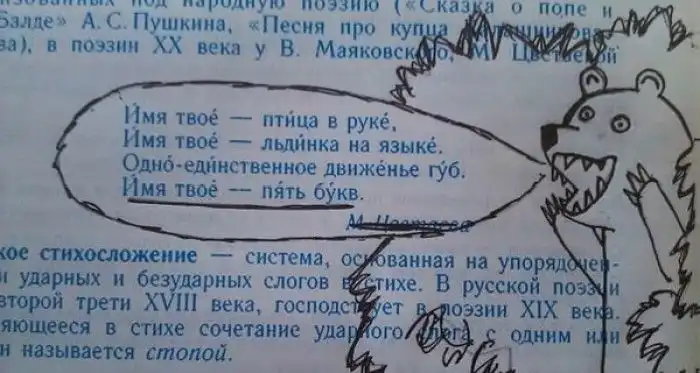 изованных под народную поэзию («Сказка о попе и
Балде» А. С. Пушкина, «Песня про купца Калашникова»
ва), в поэзии XX века у В. Маяковского, М. Цветаевой
И́мя твое́ — пти́ца в руке́,
И́мя твое́ — льди́нка на языке́.
Одно́-еди́нственное движе́нье гу́б.
И́мя твое́ — пя́ть бу́кв.
М. Цветаева
кое стихосложение — система, основанная на упорядочен-
и ударных и безударных слогов в стихе. В русской поэзии
второй трети XVIII века, господствует в поэзии XIX века.
яющееся в стихе сочетание ударного слога с одним или
н называется стопой.